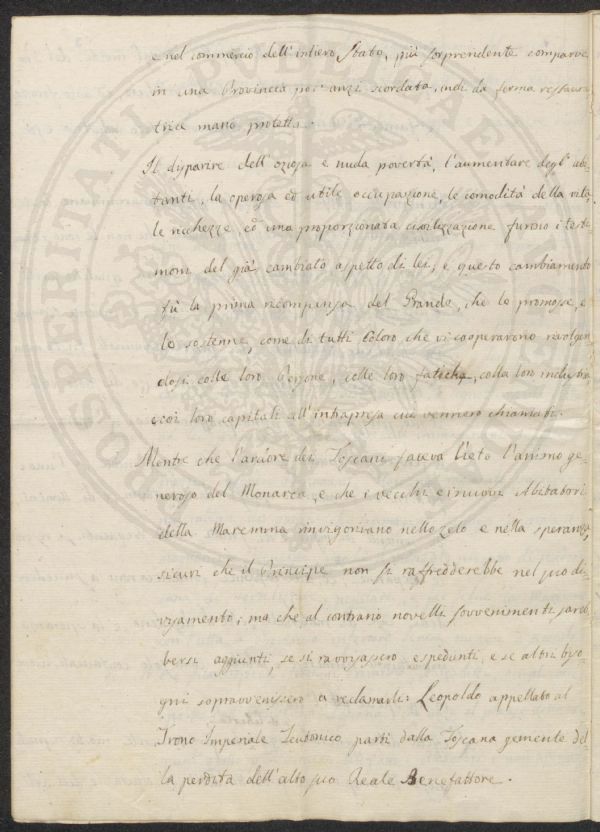 e nel commercio dell'intiero Stato, più sorprendente comparve
in una Provincia poc'anzi scordata, indi da ferma restaura
trice mano protetta.
Il disparire dell'oziosa e nuda povertà, l'aumentare degl'abi-
tanti, la operosa ed utile occupazione, le comodità della vita
le ricchezze ed una proporzionata civilizzazione furono i testi-
moni del già cambiato aspetto di lei, e questo cambiamento
fù la prima ricompensa del Grande, che lo promosse, e
lo sostenne, come di tutti Coloro che vi cooperarono rivolgen
dosi colle loro Persone, colle loro fatiche, colla loro industria
e coi loro capitali all'intrapresa cui vennero chiamati.
Mentre che l'ardore dei Toscani faceva lieto l'animo ge-
neroso del Monarca, e che i vecchi e i nuovi Abitatori
della Maremma rinvigorivano nello zelo e nella speranza,
sicuri che il Principe non si raffredderebbe nel suo di-
visamento; ma che al contrario novelli sovvenimenti sareb
bersi aggiunti, se si ravvisassero espedienti, e se altri biso-
gni sopravvenissero a reclamarli: Leopoldo appellato al
Trono Imperiale Teutonico partì dalla Toscana gemente del
la perdita dell'alto suo Reale Benefattore.
PROSPERITATI PUBLICAE